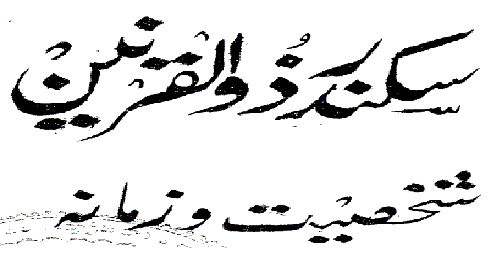 سکندر ذوالقرنین
شخصیت و زمانہ